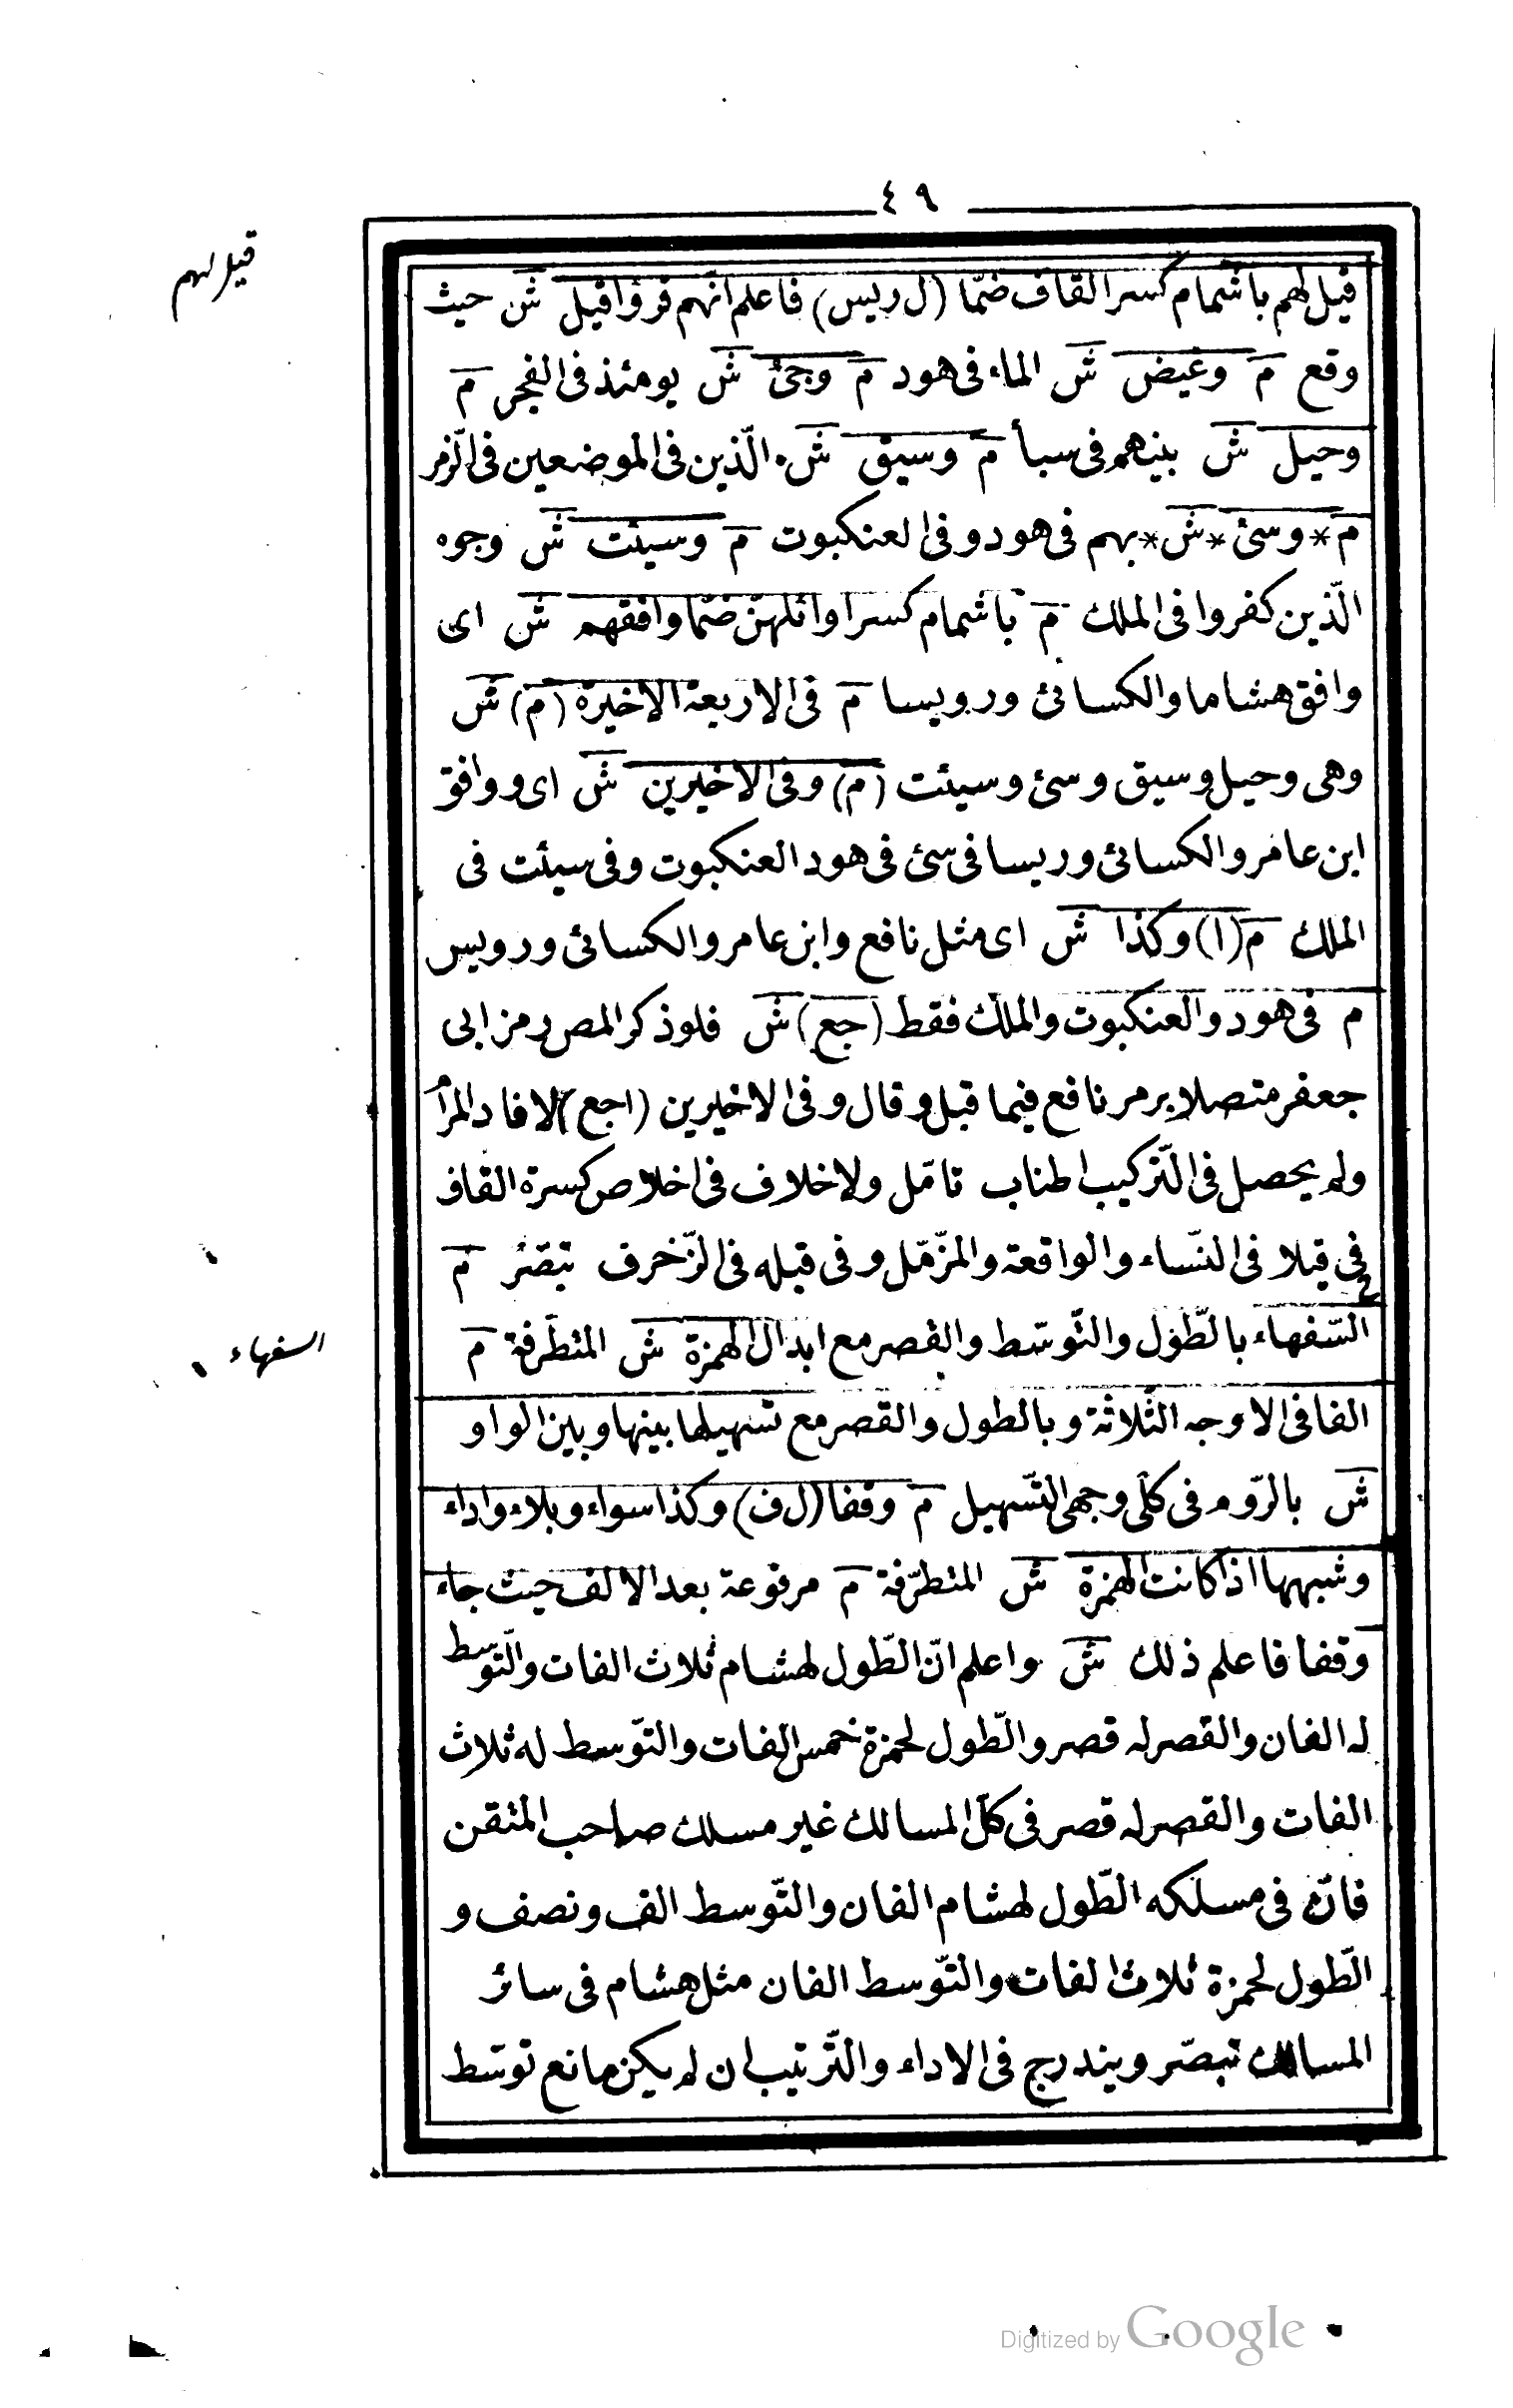 ٤٩
قيل لهم
قيل لهم باشمام كسر القاف ضمّا (ل ريس) فاعلم انهم قرؤا قيل ش حيث
وقع م وغيض ش الماء فى هود م وجئ ش يومئذ فى الفجر م
وحيل ش بينهم فى سبأ م وسيق ش الّذين فى الموضعين فى الزّمر
م * وسئ * ش * بهم فى هود وفى العنكبوت م وسيئت ش وجوه
الّذين كفروا فى الملك م باشمام كسر اوائلهن ضمّا وافقهم ش اى
وافق هشاما والكسائئ ورويسا م فى الاربعة الاخيرة (م) ش
وهى وحيل وسيق وسئ وسيئت (م) وفى الاخيرين ش اى ووافق
ابن عامر والكسائئ وريسا فى سئ فى هود العنكبوت وفى سيئت فى
الملك م (ا) وكذا ش اى مثل نافع وابن عامر والكسائئ ورويس
م فى هود والعنكبوت والملك فقط (جع) ش فلو ذكر المص رمز ابى
جعفر متصلا برمز نافع فيما قبل وقال وفى الاخيرين (اجع) لافاد المرام
ولم يحصل فى التّركيب اطناب تامّل ولا خلاف فى اخلاص كسرة القاف
فى قيلا فى النّساء والواقعة والمزّمّل وفى قيله فى الزّخرف تبصّر م
السّفهاء بالطّول والتّوسّط والقصر مع ابدال الهمزة ش المتطرّفة م
السفهاء
الفا فى الاوجه الثّلاثة وبالطول والقصر مع تسهيلها بينها وبين الواو
ش بالرّوم فى كلى وجهى التّسهيل م وقفا (ل ف) وكذا سواء وبلاء واداء
وشبهها اذا كانت الهمزة ش المتطرّفة م مرفوعة بعد الالف حيث جاء
وقفا فاعلم ذلك ش واعلم انّ الطّول لهشام ثلاث الفات والتّوسط
له الفان والقصر له قصر والطّول لحمزة خمس الفات والتّوسط له ثلاث
الفات والقصر له قصر فى كلّ المسالك غير مسلك صاحب المتقن
فانّ فى مسلكه الطّول لهشام الفان والتّوسط الف ونصف و
الطّول لحمزة ثلاث الفات والتّوسط الفان مثل هشام فى سائر
المسالك تبصّر ويندرج فى الاداء والتّرتيب ان لم يكن مانع توسّط
Digitized by Google